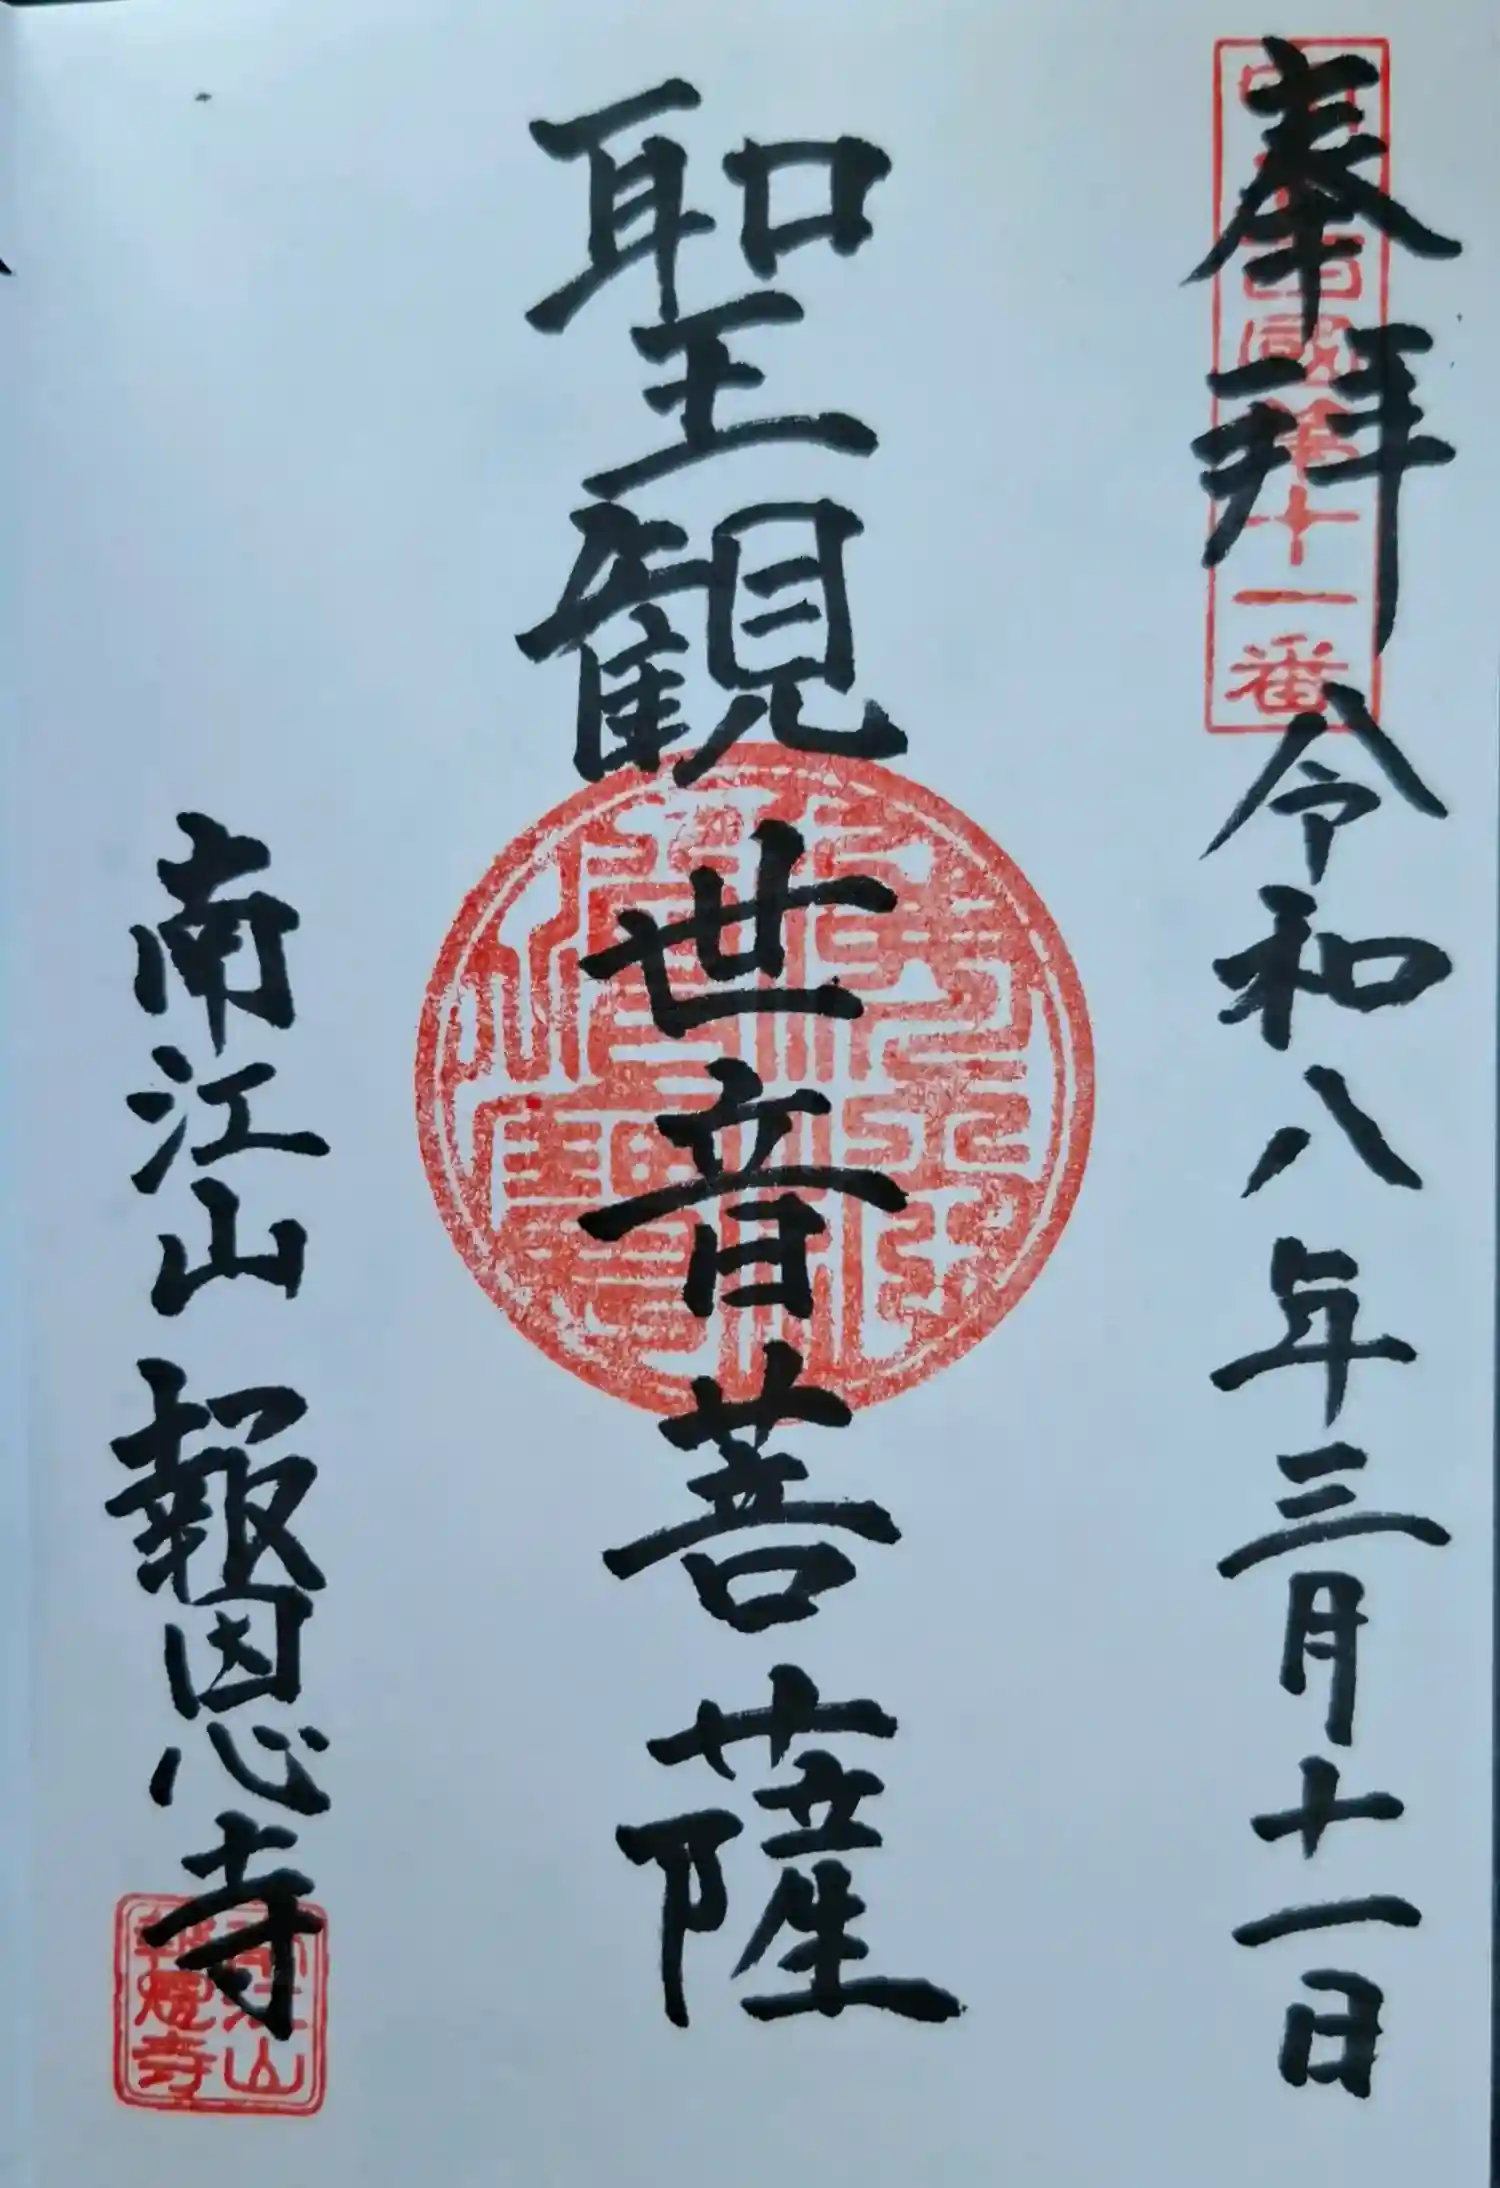 奉拝
令和八年三月十一日
中国四十三國第十一番
聖観世音菩薩
南江山 報恩寺
南江山
報恩寺